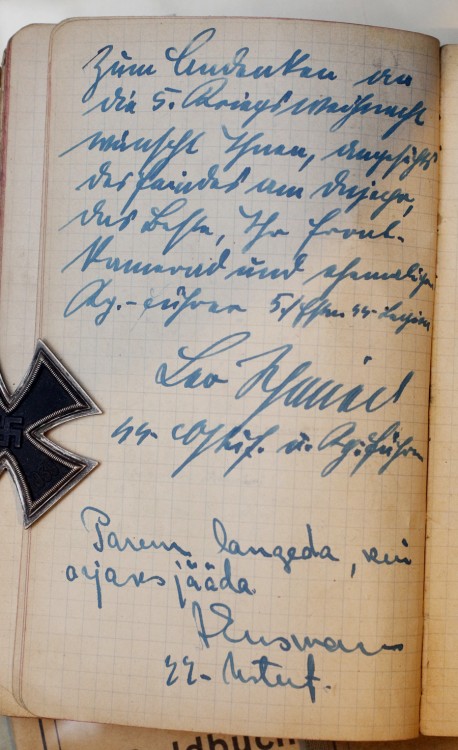 Zum Andenken an
die 5. Kriegsweihnacht
wünscht Ihnen, angesichts
des Feindes am Dnjepr,
das Beste, Ihr Front-
kamerad und ehemaliger
Kp.-Führer 5./Estn. SS-Legion
Leo
SS-Ostuf. u. Kp. Führer
Parem langeda, kui
orjaks jääda.
SS-Ustuf.